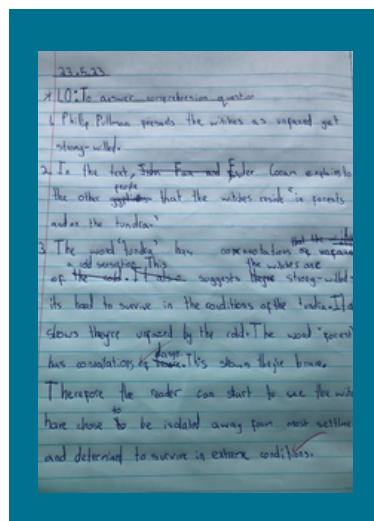 23.5.23
* LO: To answer comprehresion question
1. Phillip Pullman presents the witches as unfazed yet
strong-willed.
2. In the text, John Faa and Fader Coram explains to
the other people that the witches reside "in forests
and on the tundra."
3. The word "tundra" has connotations of
a cold sensation. This the witches are
of the cold. It also suggests theyre strong-willed-
its hard to survive in the conditions of the tundra. It a
shows theyre unfazed by the cold. The word "forest
has connotations of danger. This shows theyre brave.
Therefore the reader can start to see the witc
have chose to be isolated away from most settleme
and determined to survive in extreme conditions.